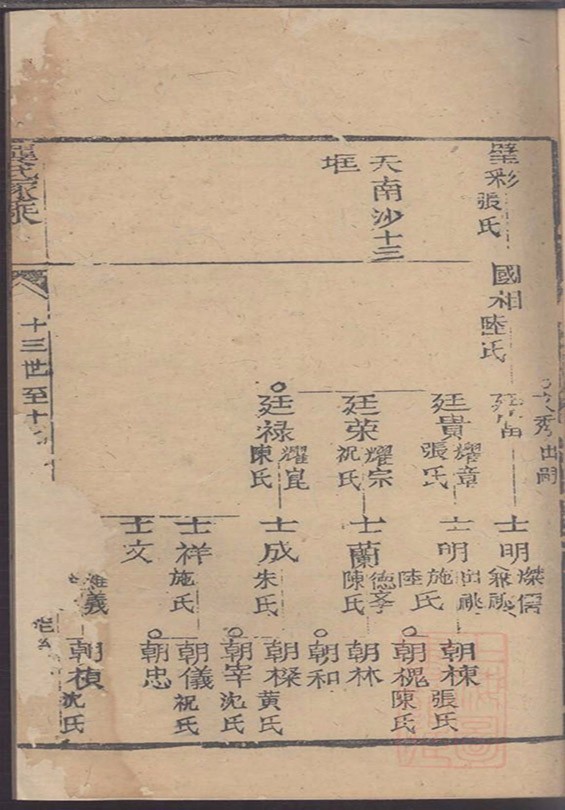 璧彩 張氏
國相 陸氏
秀出嗣
士明 燦儒 兼祧
天南沙十三
㘰
廷貴 耀章 張氏
士明 出祧 施氏 陸
朝棟 張氏
朝槐 陳氏
廷荣 耀宗 祝氏
士蘭 德孚 陳氏
朝林
朝和
廷禄 耀崑 陳氏
士成 朱氏
朝樑 黄氏
朝宰 沈氏
士祥 施氏
朝儀 祝氏
朝忠
士文
義
朝楨 沈氏
氏家乘
十三世至十